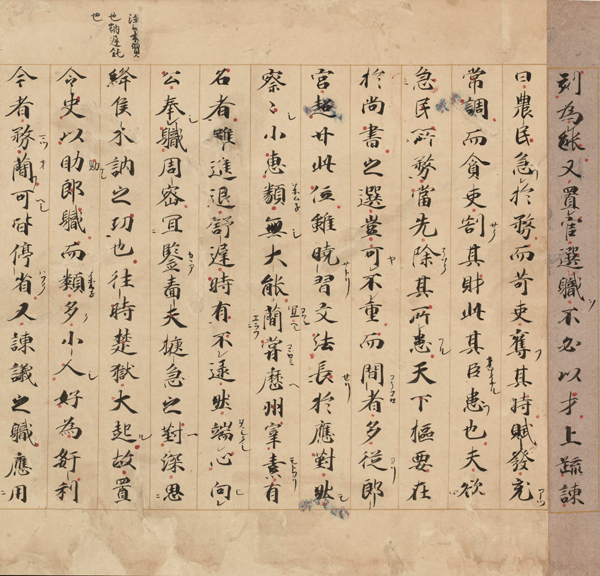 刻為能又置官選職不必以才上疏諫
曰農民急於務而苛吏奪其時賦發充
常調而貪吏割其財此其臣患也夫欲
急民所務當先除其所患天下樞要在
於尚書之選豈可不重而間者多從郎
官超升此位雖曉習文法長於應對然
察〻小惠類無大能蕳嘗歷州宰素有
名者雖進退舒遲時有不逮然端心向
公奉職周密宜監嗇夫捷急之對深思
絳侯木訥之功也往時楚獄大起故置
令史以助郎職而類多小人好為姧利
今者務蕳可皆停省又諫議之職應用
注木質
也訥遅鈍
也